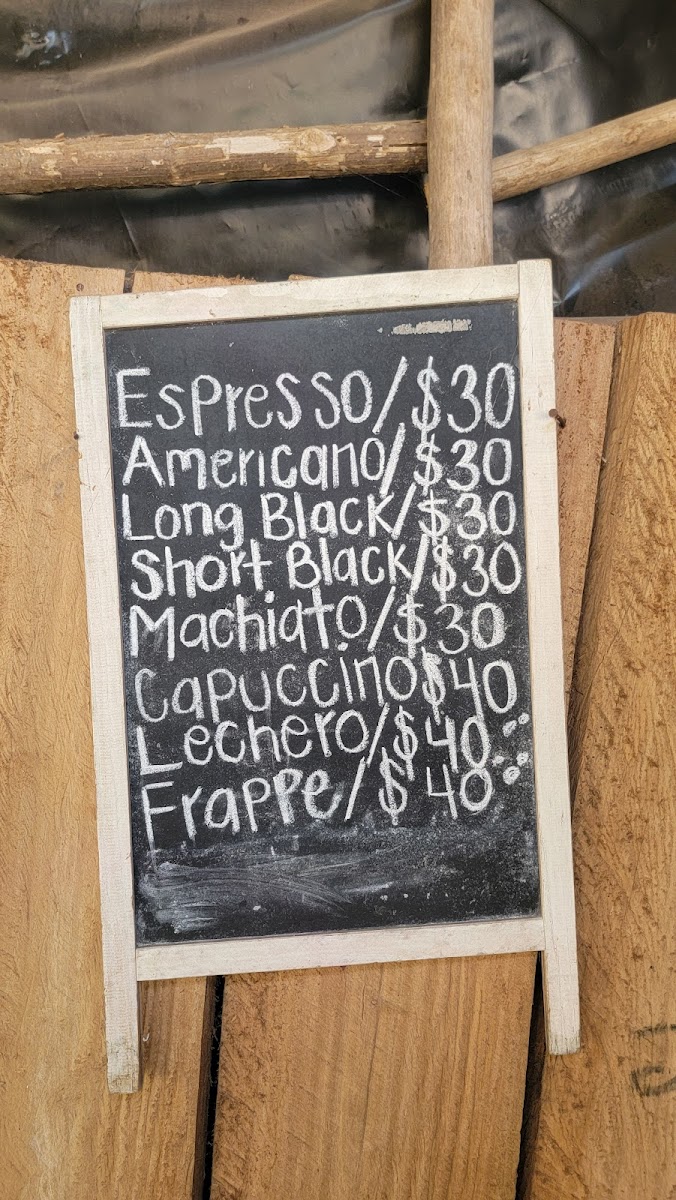 Espresso/$30
Americano/$30
Long Black/$30
Short Black/$30
Machiato/$30
Capuccino$40
Lechero/$40
Frappe/$40